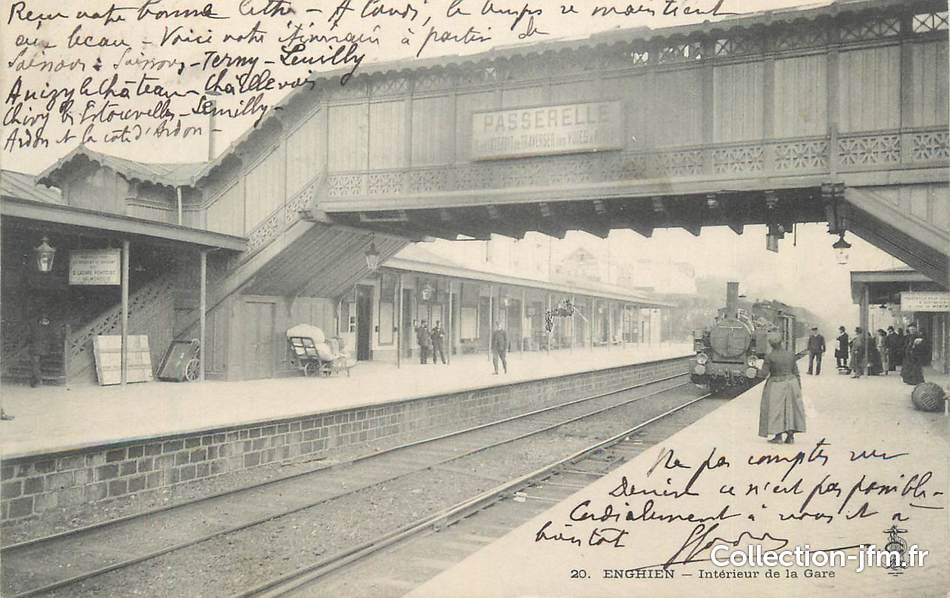 Reçu votre bonne lettre - A lundi, le temps se maintient
au beau - Voici votre itinéraire à partir de
Soissons : Soissons - Terny - Leuilly
Anizy le Château - Chaillevois
Chivy les Etouvelles - Semilly -
Ardon et la côte d'Ardon -
PASSERELLE
TRAVERSER LES VOIES
Ne pas compter sur
Denise ce n'est pas possible -
Cordialement à vous et à
bientôt
20. ENGHIEN - Intérieur de la Gare
Collection-jfm.fr